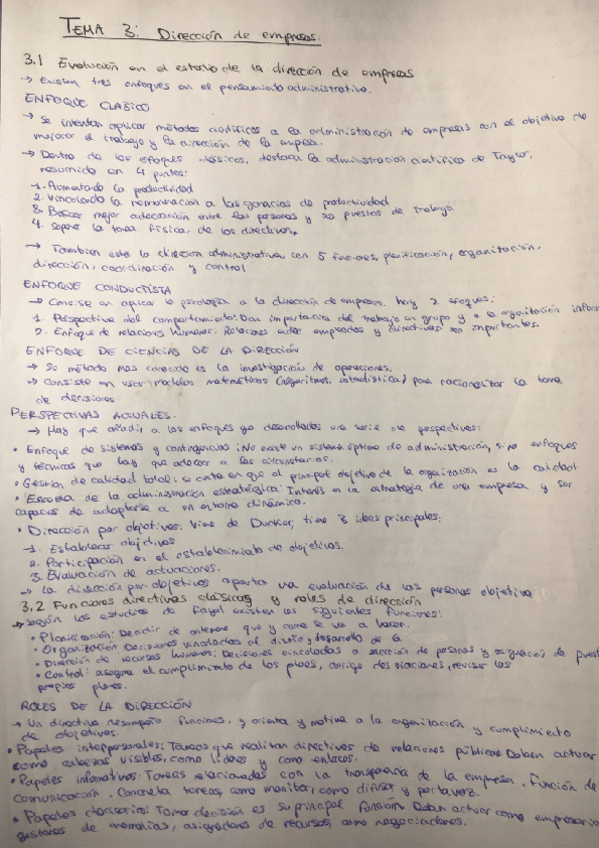 TEMA 3: Dirección de empresas.
3.1 Evolución en el estudio de la dirección de empresas
→ Existen tres enfoques en el pensamiento administrativo.
ENFOQUE CLASICO
→ Se intentan aplicar métodos científicos a la administración de empresas con el objetivo de
mejorar el trabajo y la dirección de la empresa.
→ Dentro de los enfoques clásicos, destaca la administración científica de Taylor,
resumido en 4 puntos:
1. Aumentado la productividad
2. Vinculando la remuneración a las ganacias de productividad
3. Buscar mejor adecuación entre las personas y sus puestos de trabajo.
4. Separar la tarea física, de los directivos,
→ Tambien esta la direccion administrativa, con 5 funciones, planificación, organización,
dirección, coordinación y control
ENFOQUE CONDUCTISTA
→ Consiste en aplicar la psicología a la dirección de empresas. hay 2 efoques:
1. Perspectiva del comportamiento: Dan importancia del trabajo en grupo y a la organización
2. Enfoque de relaciones humanas: Relaciones entre empleados y directivos son importantes.
ENFOQUE DE CIENCIAS DE LA DIRECCIÓN
→ Su método mas conocido es la investigación de operaciones.
→ Consiste en usar modelos matemáticos (algoritmos, estadística) para racionalizar la toma
de decisiones
PERSPECTIVAS ACTUALES.
→ Hay que añadir a los enfoques ya desarrollados una serie de perspectivas:
• Enfoque de sistemas y contingencias: No existe un sistema óptimo de administración, sino enfoques
y técnicas que hay que adecuar a las circunstancias.
• Gestión de calidad total: se centra en que el principal objetivo de la organización es la calidad
• Escuela de la administración estratégica: Interés en la estrategia de una empresa y ser
capaces de adaptarse a un entorno dinámico.
• Dirección por objetivos. Viene de Drucker, tiene 3 ideas principales:
→1. Establecer objetivos
2. Participación en el establecimiento de objetivos.
3. Evaluación de actuaciones.
→ La dirección por objetivos aporta una evaluación de las personas objetiva
3.2 Funciones directivas clásicas y roles de dirección
→ Según los estudios de Fayol existen las siguientes funciones:
• Planificación: Decidir de antemano que y como se va a hacer.
• Organización Decisiones vinculadas al diseño y desarrollo de la
• Dirección de recursos humanos: Decisiones vinculadas a selección de personas y asignación de
• Control: asegura el cumplimiento de los planes, corrige desviaciones, revisar los
propios planes.
ROLES DE LA DIRECCIÓN
→ Un directivo desempeña funciones, y orienta y motiva a la organización y cumplimiento
de objetivos.
• Papeles interpersonales: Tareas que realizan directivos de relaciones públicas. Deben actuar
como cabezas visibles, como líderes y como enlaces.
• Papeles informativos: Tareas relacionadas con la transparencia de la empresa. Función de
comunicación. Concreta tareas, como monitor, como difusor y portavoz.
• Papeles decisorios: Tomar decisión es su principal función. Deben actuar como empresario,
gestores de anomalías, asignadores de recursos, como negociadores.